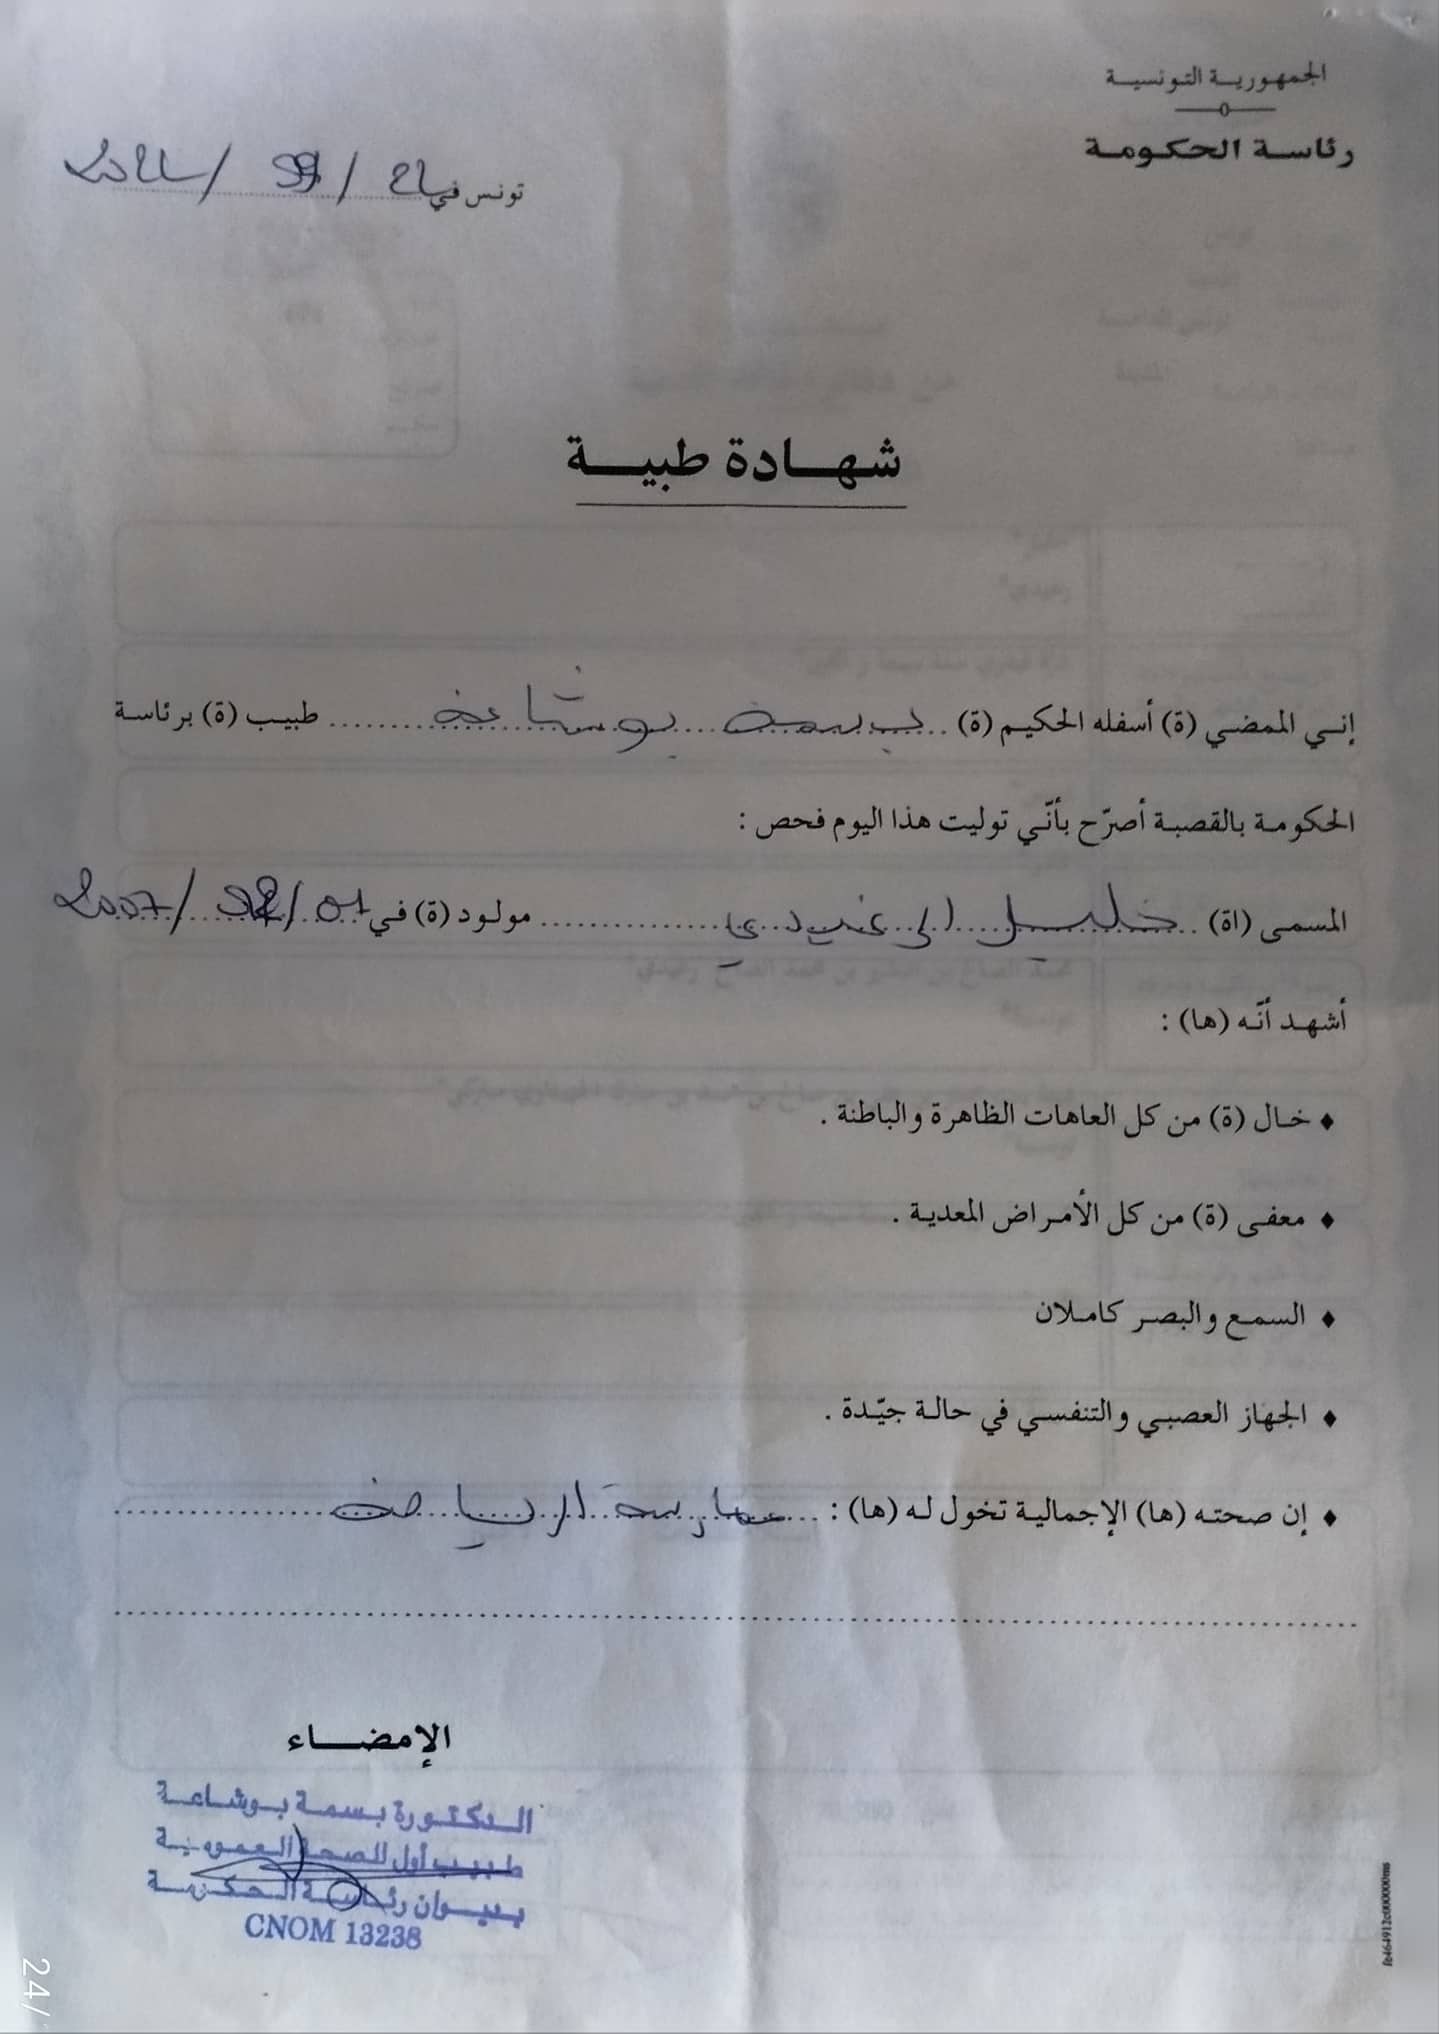 الجمهورية التونسية
رئاسة الحكومة
تونس في 21 / 09 / 2022
شهادة طبية
إني الممضي (ة) أسفله الحكيم (ة) بسمة بوشاعة طبيب (ة) برئاسة
الحكومة بالقصبة أصرّح بأنّي توليت هذا اليوم فحص :
المسمى (اة) خليل مولود (ة) في 01 / 2007
أشهد أنّه (ها) :
♦ خال (ة) من كل العاهات الظاهرة والباطنة .
♦ معفى (ة) من كل الأمراض المعدية .
♦ السمع والبصر كاملان
♦ الجهاز العصبي والتنفسي في حالة جيّدة .
♦ إن صحته (ها) الإجمالية تخول له (ها) : ممارسة الرياضة
الإمضاء
الدكتورة بسمة بوشاعة
طبيب أول للصحة العمومية
بديوان رئاسة الحكومة
CNOM 13238
24/